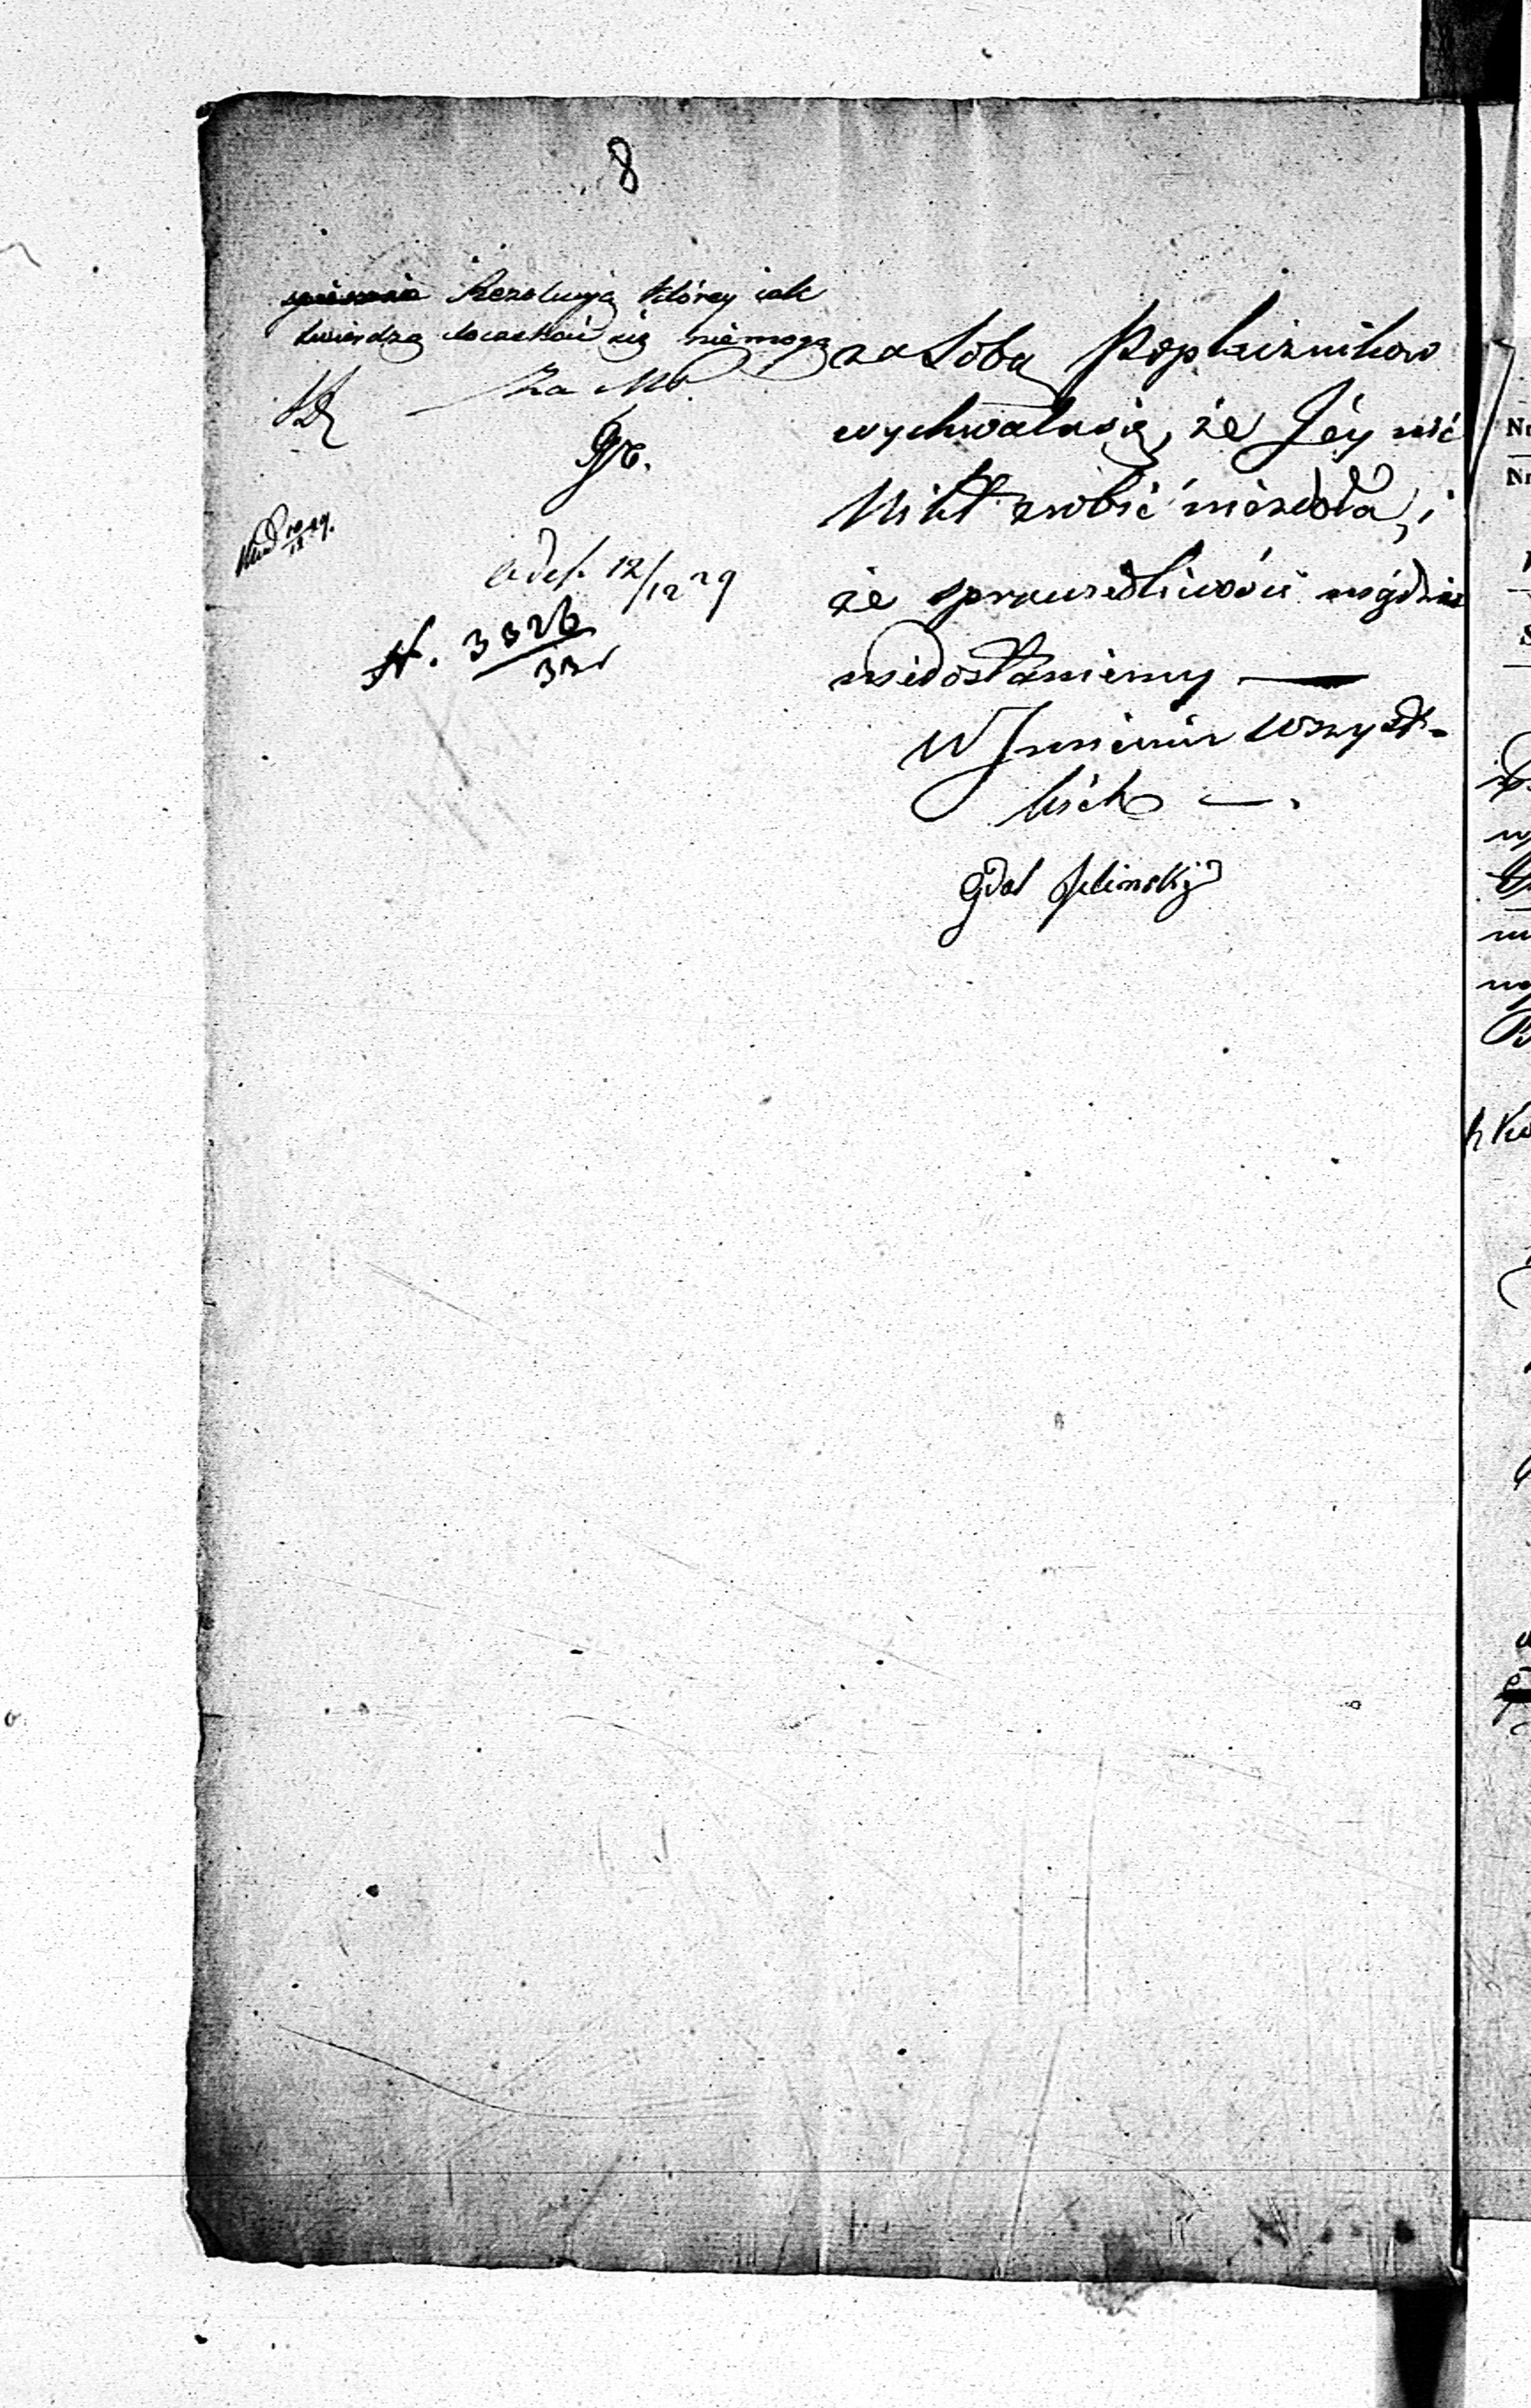 8
Rezolucyą któréy iak
twierdzą doczekać się niemogą
Za
adef. 12/12 29
N. 3326
za Sobą Popleiznikow
wychwalasię, że Jéy nić
Nikt zrobić niezdoła, i
że sprawiedliwości nigdzie
niedostaniemy —
W Jmieniu Wszyst-
kich — .
Gdal Jelinsky